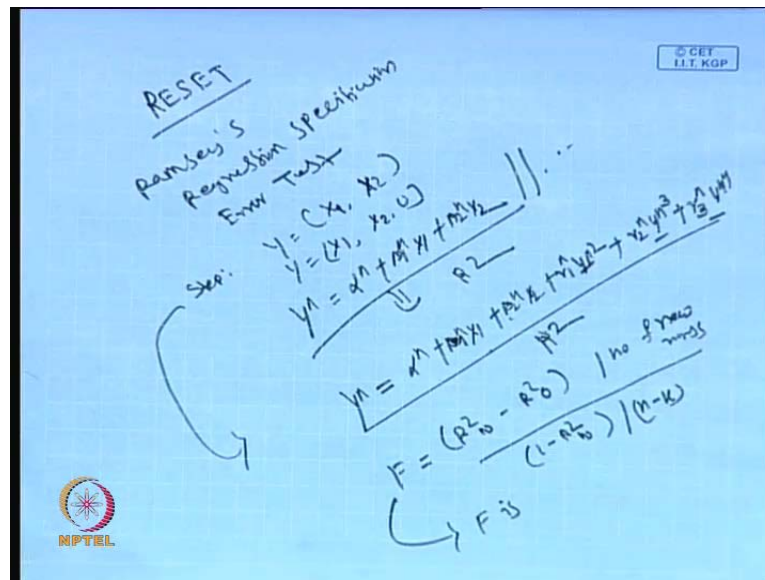 © CET
I.I.T. KGP
RESET
Ramsey's
Regression Specification
Error Test
Y = (X1, X2)
Step:
Y = (X1, X2, U)
Y^ = α^ + β1^ X1 + β2^ X2 || ...
R2
Y^ = α^ + β1^ X1 + β2^ X2 + γ1^ Y^2 + γ2^ Y^3 + γ3^ Y^4
R2
F = (R2n - R2o) / no of new
(1-R2n) / (n-k)
F is
NPTEL